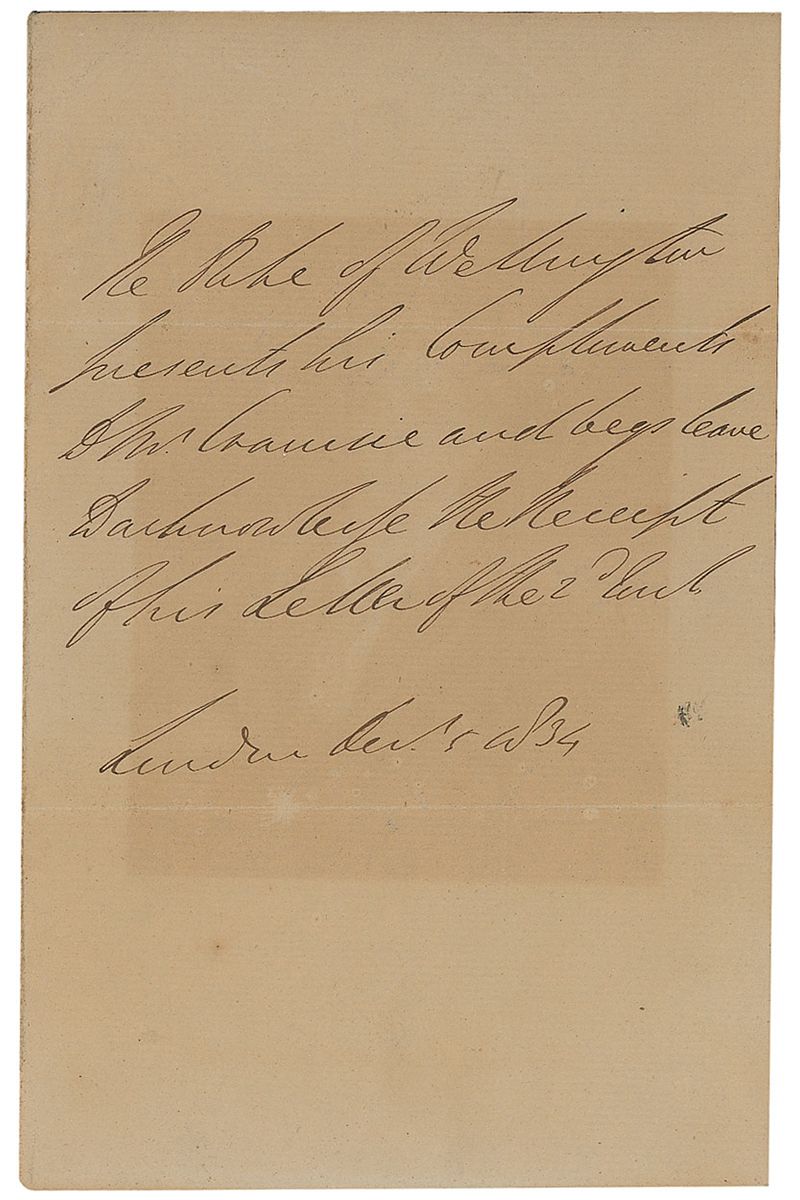 The Duke of Wellington
presents his Compliments
To Mr. and begs leave
To acknowledge the Receipt
of his Letter of the 2d Inst
London Decr. 5 1834